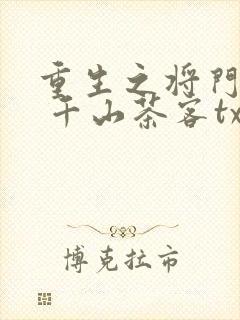 重生之将門
千山茶客tx
博克拉市